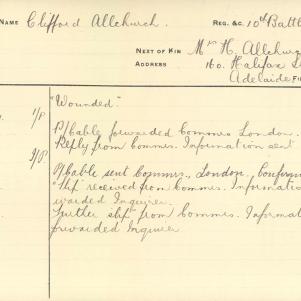 NAME Clifford Allchurch. REG. &C. 10th Battl
NEXT OF KIN Mrs H. Allchur
ADDRESS 160. Halifax S
Adelaide
"Wounded."
P/Cable forwarded Commrs London.
Reply from Commrs. Information sent
P/Cable sent Commrs., London, Confirm
"slip" received from Commrs. Informatio
warded Inquirer.
Further slip from Commrs. Informat
forwarded Inquirer